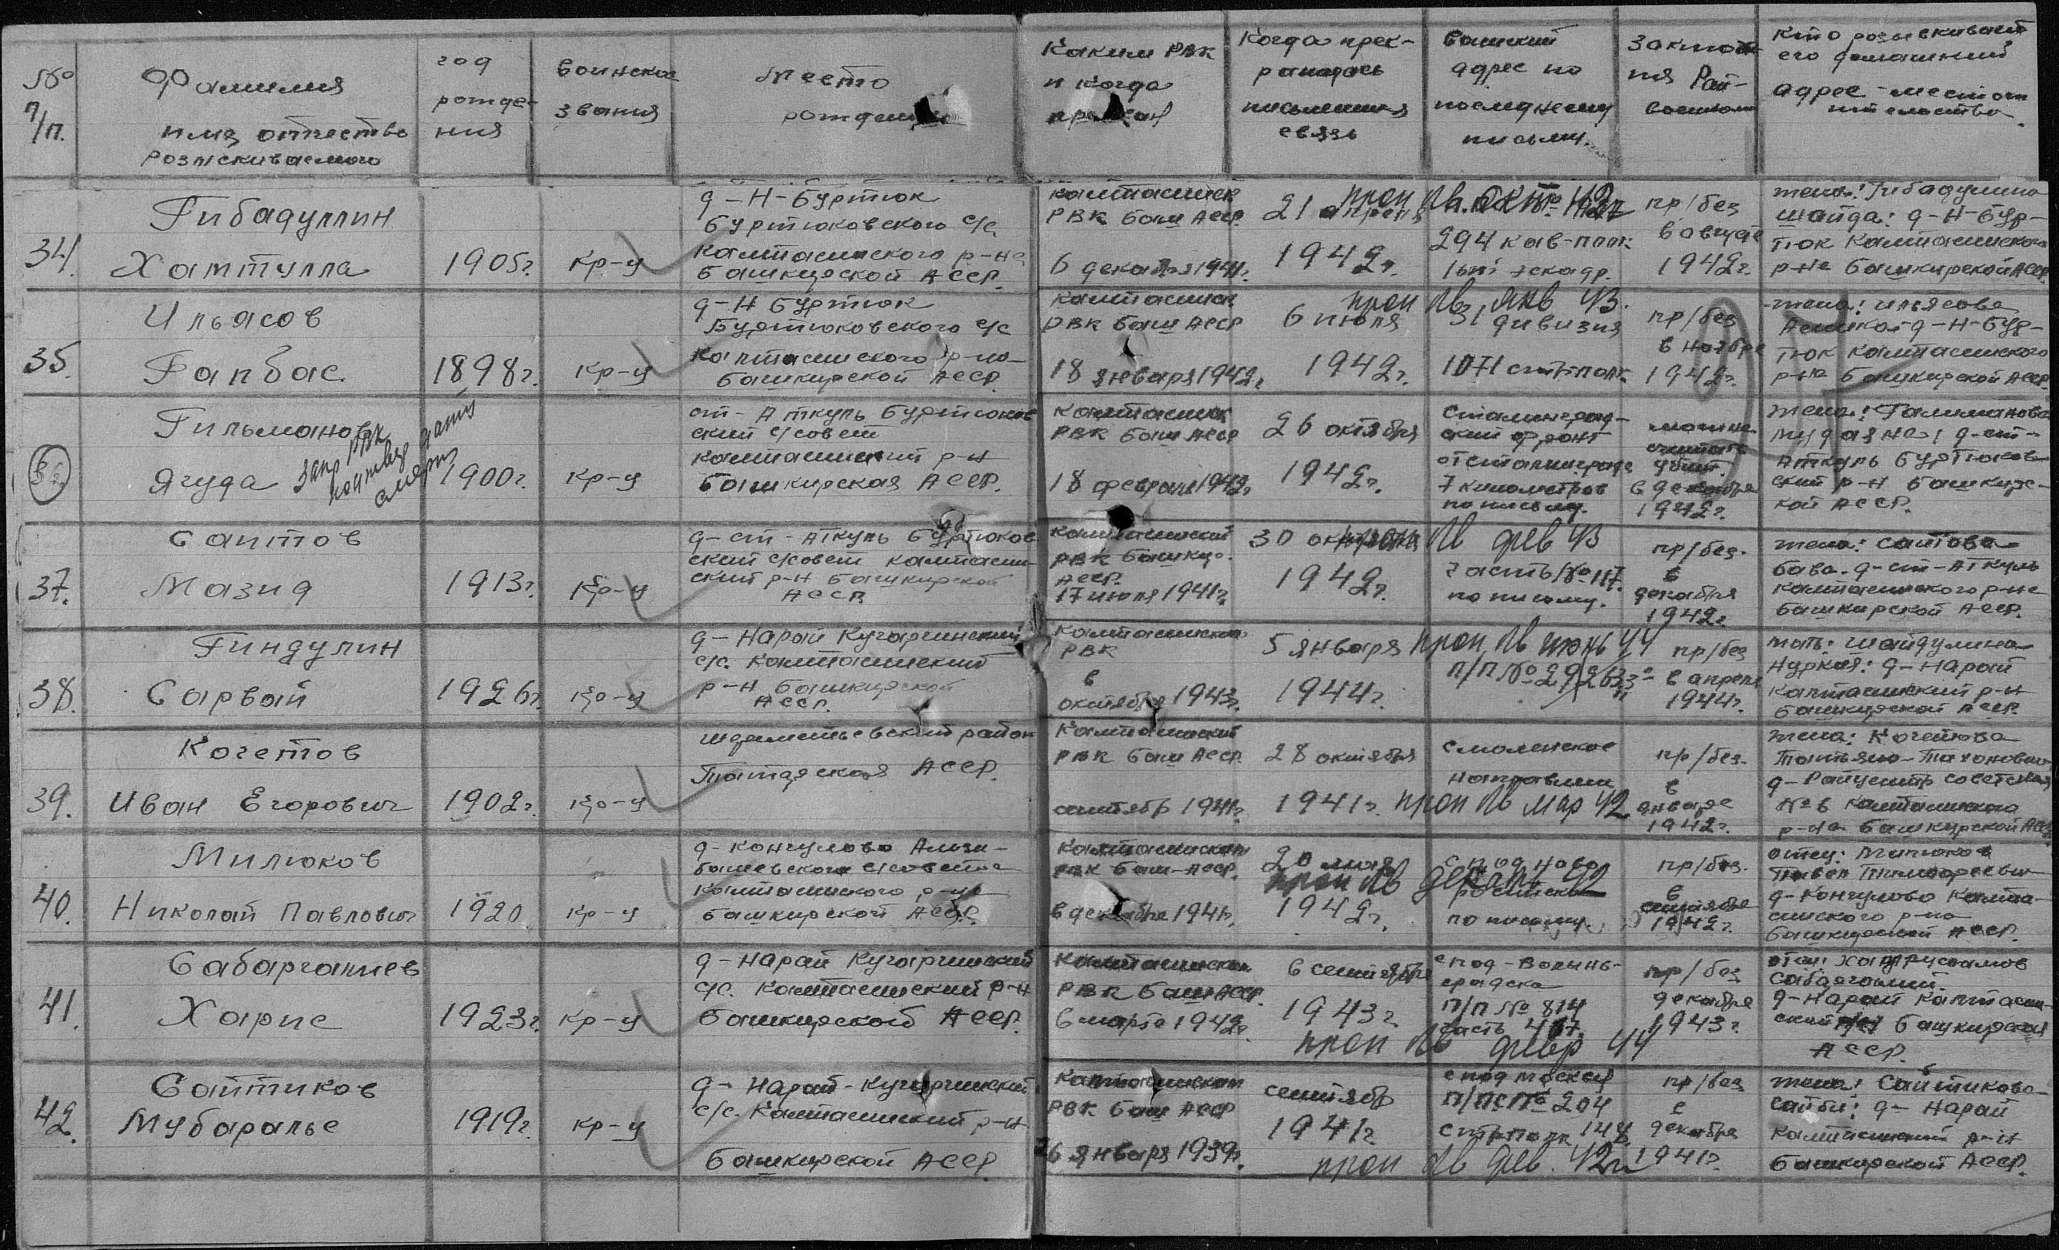 № п/п.
Фамилия
имя отчество
розыскиваемого
год
рожде-
ния
воинское
звания
Место
рождения
Каким РВК
и когда
призван
Когда прек-
ратилась
письменная
связь
адрес по
последнему
письму.
Рай-
Кто розыскивает
его домашний
адрес - место
жительства.
34. Гибадуллин
Хаматулла
1905г.
кр-ц
д-Н-Буртюк
Буртюковского с/с.
Калтасинского р-на
Башкирской АССР.
Калтасинск
РВК Баш АССР
6 декабря 1941г.
21 апреля
1942г.
проп. б/в. окт. 42г
294 кав-полк
1ый эскадр.
пр/без
в августе
1942г.
жена: Гибадулина
Шайда: д-Н-Бур-
тюк Калтасинского
р-на Башкирской АССР
35. Ильясов
Гапбас.
1898г.
кр-ц
д-Н Буртюк
Буртюковского с/с
Калтасинского р-на
Башкирской АССР.
Калтасинск
РВК Баш АССР
18 января 1942г.
6 июля
1942г.
проп б/в. янв 43.
31 дивизия
1071 стр-полк.
пр/без
в ноябре
1942г.
жена: Ильясова
д-Н-Бур-
тюк Калтасинского
р-на Башкирской АССР
36. Гильманов
Ягуда
запр РВК
смерти
1900г.
кр-ц
ст-Аткуль Буртюков
ский с/совет
Калтасинский р-н
Башкирская АССР.
Калтасинск
РВК Баш АССР
18 февраля 1942г.
26 октября
1942г.
Сталинград-
ский фронт
от сталинграда
7 километров
по письму.
можно
считать
убит
в декабря
1942г.
жена: Галиманова
д-ст-
Аткуль Буртюков-
ский р-н Башкирс-
кой АССР.
37. Саитов
Мазид
1913г.
кр-ц
д-ст-Аткуль Буртюков
ский с/совет Калтасин-
ский р-н Башкирской
АССР.
Калтасинский
РВК Башкир.
АССР.
17 июля 1941г.
30 октября
1942г.
проп б/в фев 43
часть № 117.
по письму.
пр/без.
в
декабря
1942г.
жена: Саитова
д-ст-Аткуль
Калтасинского р-на
Башкирской АССР.
38. Гиндулин
Сарвай
1926г.
кр-ц
д-Нарай Кугарчинский
с/с. Калтасинский
р-н Башкирской
АССР.
Калтасинск
РВК
в
октября 1943г.
5 января
1944г.
проп б/в июнь 44
п/п №
пр/без
в апреля
1944г.
мать: Шайдулина
Нуркая: д-Нарай
Калтасинский р-н
Башкирской АССР.
39. Кочетов
Иван Егорович
1902г.
кр-ц
Шереметьевский район
Татарская АССР.
Калтасинский
РВК Баш АССР.
сентябр 1941г.
28 октября
1941г.
Смоленское
направлен
проп б/в мар 42
пр/без.
в
январе
1942г.
жена: Кочетова
д-Райцентр советская
№6 Калтасинского
р-на Башкирской АССР
40. Милюков
Николай Павлович
1920
кр-ц
д-Кончулово
башевского с/совета
Калтасинского р-на
Башкирской АССР.
Калтасинский
РВК Баш-АССР.
в декабре 1941г.
20 мая
1942г.
проп б/в декабрь 42
с под Ново
российска
по письму
пр/без.
в
сентябре
1942г.
отец: Милюков
Павел Тимофеевич
д-Кончулово Калта-
синского р-на
Башкирской АССР.
41. Сабарганиев
Харис
1923г.
кр-ц
д-Нарай Кугарчинский
с/с. Калтасинский р-н
Башкирской АССР.
Калтасинский
РВК Баш АССР.
6 марта 1942г.
6 сентября
1943г.
с под-Волын-
градска
п/п № 814
часть
проп б/в февр 44
пр/без
декабря
1943г.
отец:
д-Нарай Калтасин-
ский р-н Башкирская
АССР.
42. Сайтиков
Мубаралье
1919г.
кр-ц
д-Нарай-Кугарчинский
с/с. Калтасинский р-н
Башкирской АССР
Калтасинский
РВК Баш АССР
26 января 1939г.
сентябр
1941г.
с под Москвы
п/пс № 204
стр полк 148
проп б/в фев. 42г
пр/без
с
декабря
1941г.
жена: Сайтикова
д-Нарай
Калтасинский р-н
Башкирской АССР.